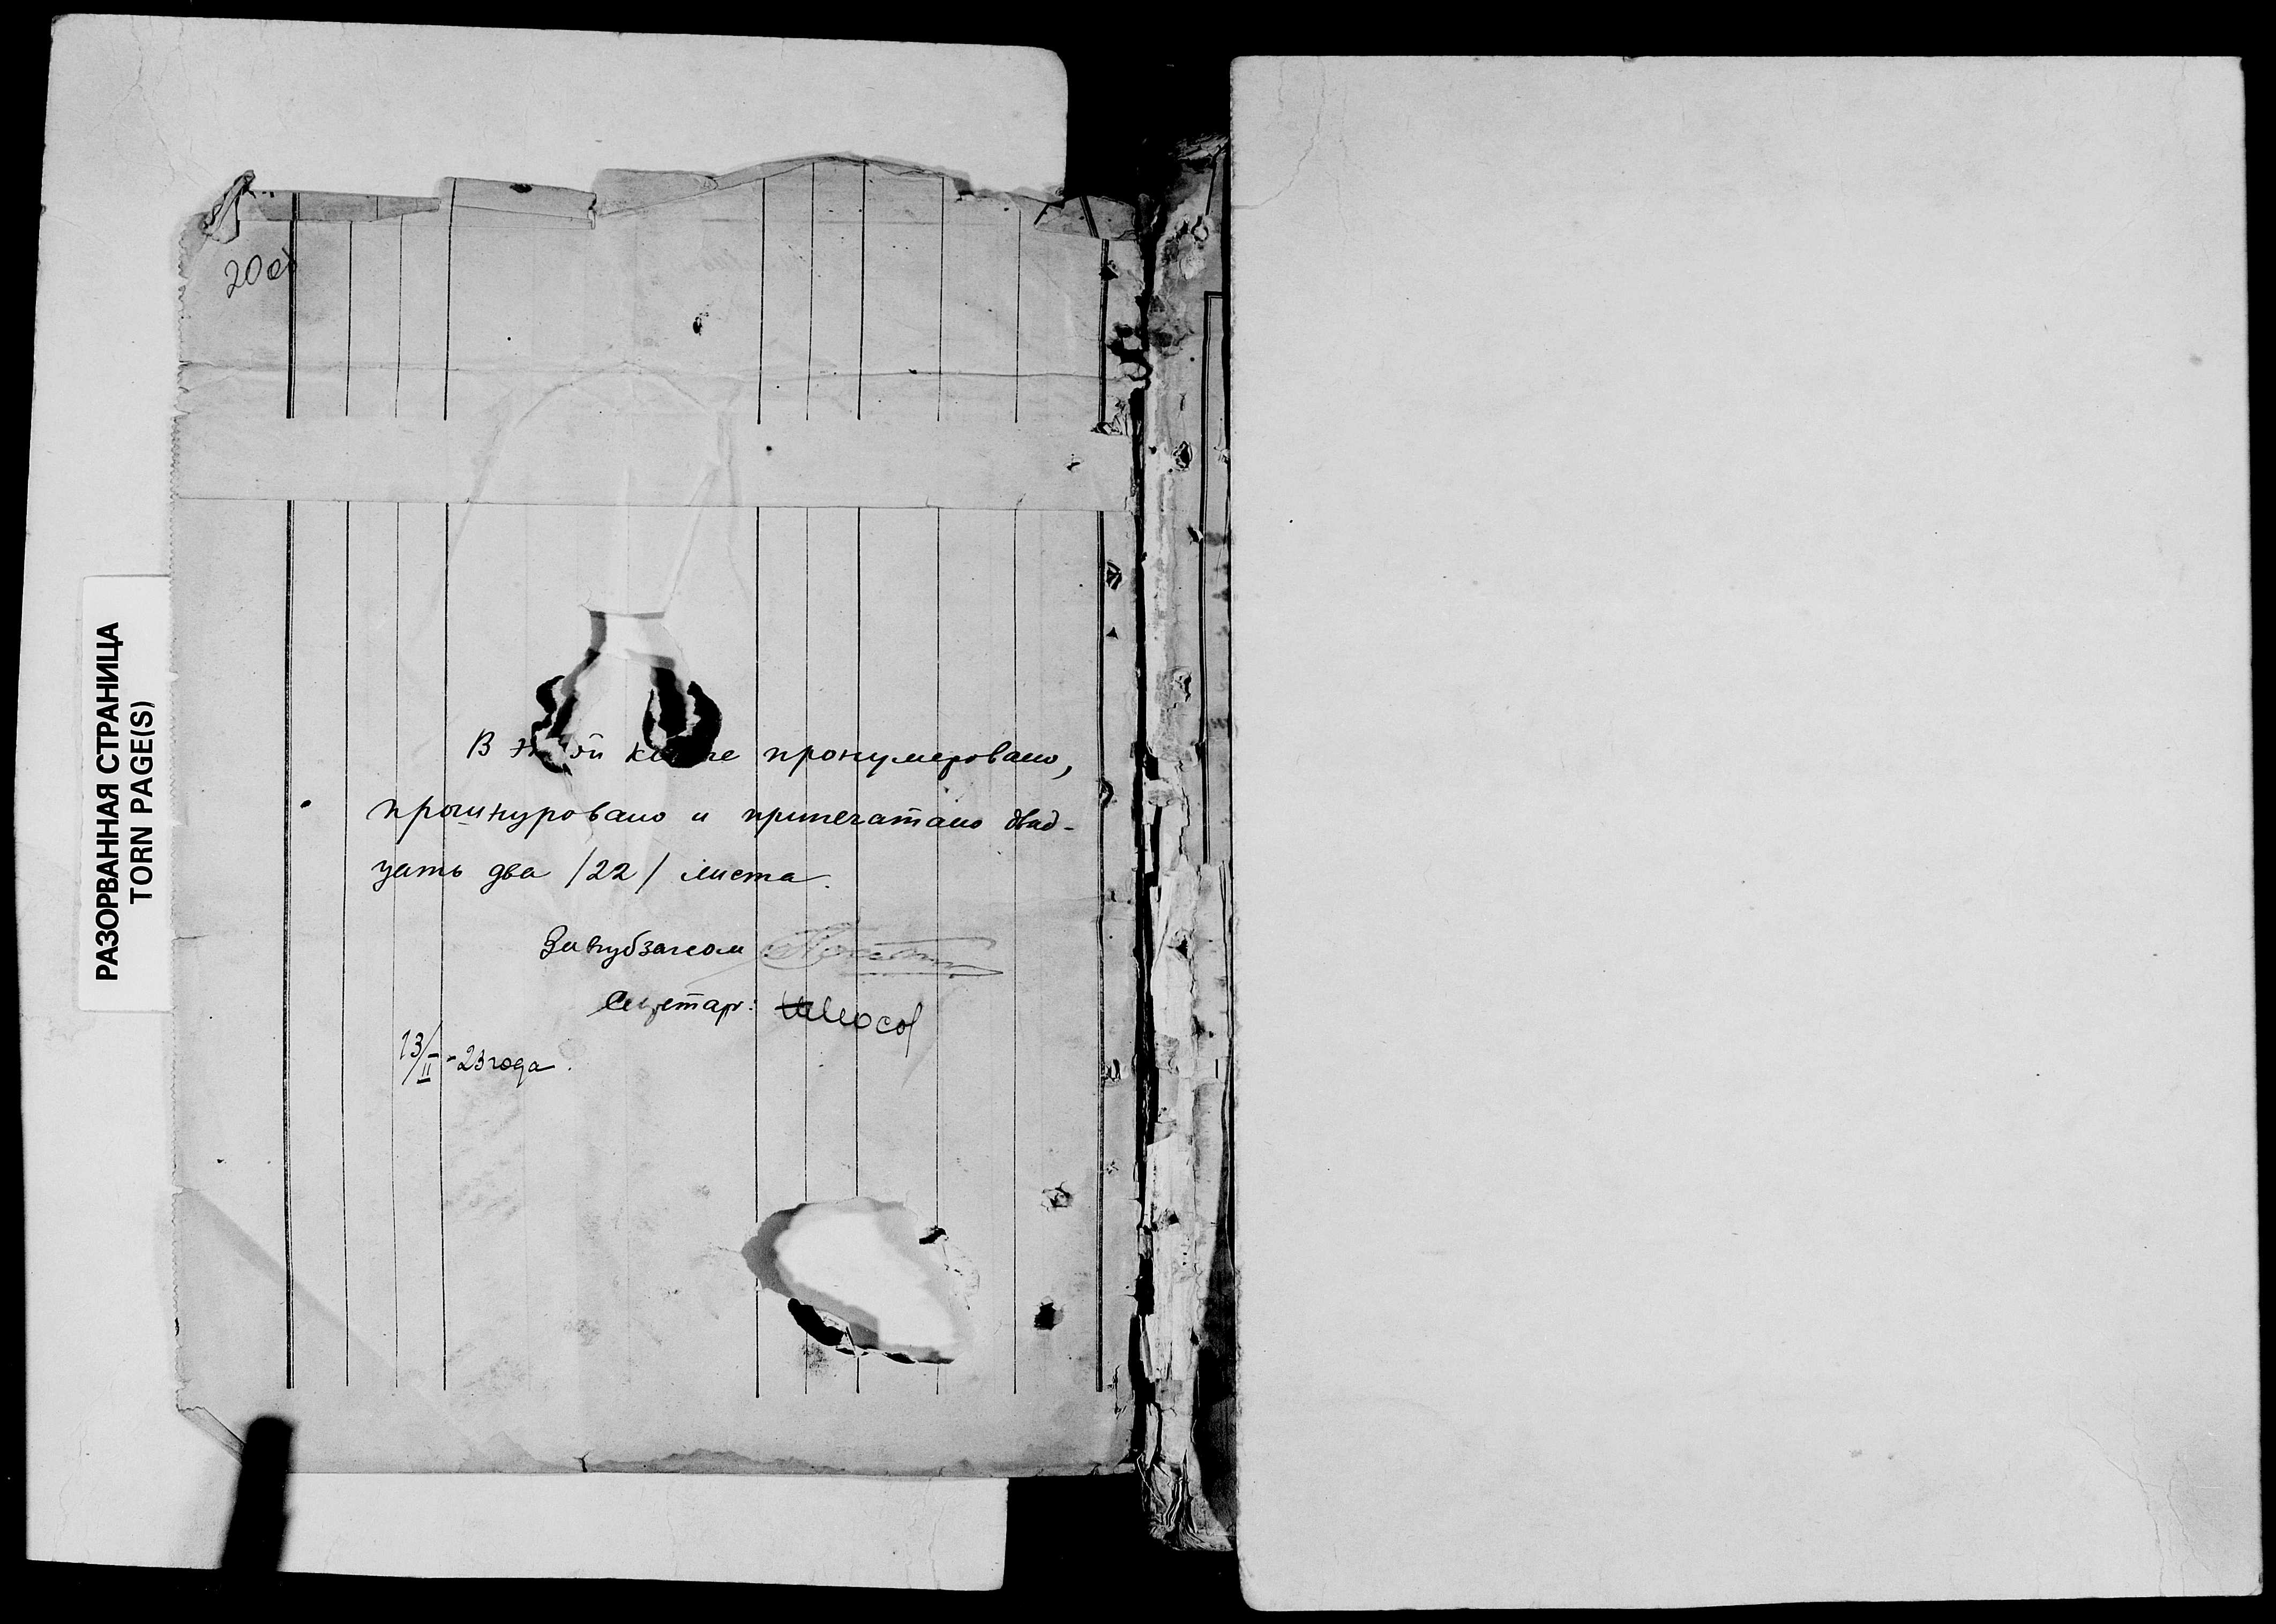 20 об
РАЗОРВАННАЯ СТРАНИЦА
TORN PAGE(S)
В этой книге пронумеровано,
прошнуровано и припечатано двад-
цать два /22/ листа.
Завгубзагсом
Секретарь:
13/II - 23 года.